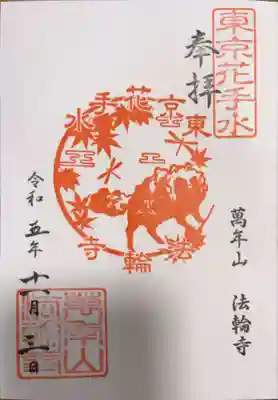 東京花手水
奉拝
東京花手水
法輪寺
萬年山 法輪寺
令和五年十一月三日
萬年山